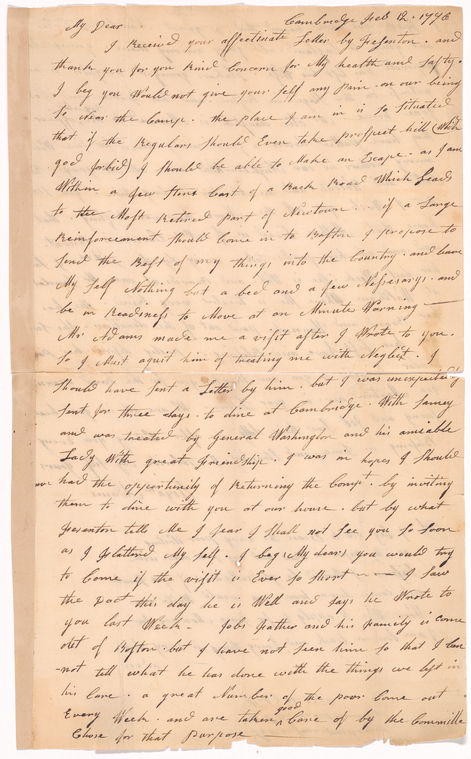 Cambridge Feb 12. 1776
My Dear
I Receivd your affectinate Letter by Fesenton. and
thank you for you Kind Concern for My health and Safty.
I beg you Would not give your self any pain. on our being
So Near the Camp. the place I am in is so Situated
that if the Regulars should Even take prospect hill (which
god forbid) I should be able to Make an Escape. as I am
Within a few stone Cast of a Back Road Which Leads
to the Most Retired part of Newtown. if a Large
Reinforcement Should Come in to Boston I propose to
Send the Best of my things into the Country. and leave
My Self Nothing but a bed and a few Nesesarys. and
be in Readiness to Move at an Minute Warning—
Mr Adams made me a visit after I Wrote to you.
So I Must aquit him of treating me with Neglect. I
Should have Sent a Letter by him. but I was unexpectedly
Sent for three days. to dine at Cambridge. With
and was treated by General Washington and his amiable
Lady With great friendship. I was in hopes I Should
had the oppertuneity of Returning the Comp. by inviting
them to dine with you at our house. but by what
Fesenton tells Me I fear I shall not see you so soon
as I flatterd My Self. I beg (My dear) you would try
to Come if the visit is Ever So Short — — I Saw
the Doct this day he is Well and says he Wrote to
you last Week — Jobs father and his family is come
out of Boston. but I have not seen him so that I can
not tell what he has done with the things we left in
his Care. a great Number of the poor Come out
Every Week. and are taken good Care of by the Committe
Chose for that purpose —